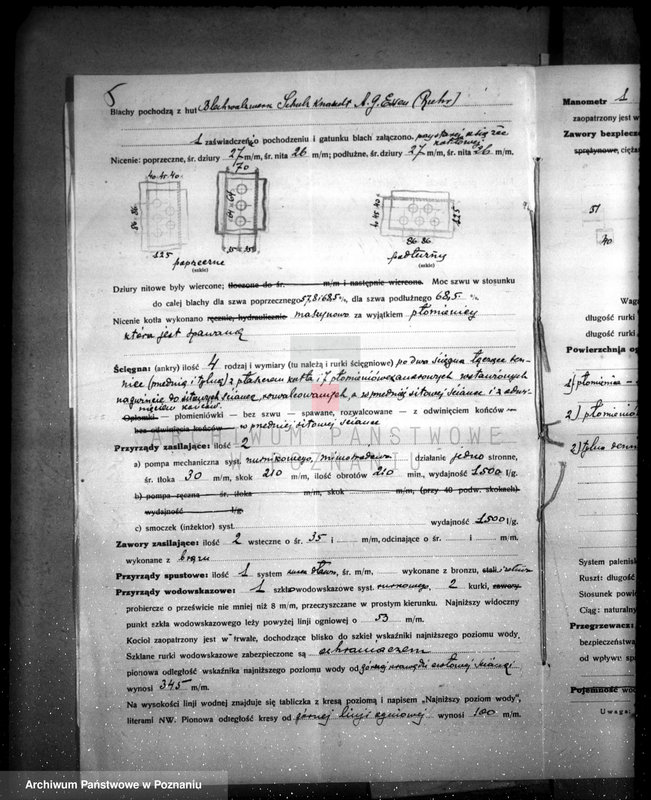 5
Blachy pochodzą z hut Blechwalzwerk Schulz Knaudt A.G Essen (Ruhr)
1 zaświadczenie o pochodzeniu i gatunku blach załączono.
Nicenie: poprzeczne, śr. dziury 27 m/m, śr. nita 26 m/m; podłużne, śr. dziury 27 m/m, śr. nita 26 m/m.
170
40·45·40
86·86
125
64·64
40·45·40
125
86 86
poprzeczne
podłużny
(szkic)
(szkic)
Dziury nitowe były wiercone; tłoczone do śr. m/m i następnie wiercone. Moc szwu w stosunku
do całej blachy dla szwa poprzecznego 57,8 i 68,5 %, dla szwa podłużnego 68,5 %.
Nicenie kotła wykonano ręcznie, hydraulicznie maszynowo za wyjątkiem płomienicy
która jest spawaną
Ścięgna: (ankry) ilość 4 rodzaj i wymiary (tu należą i rurki ścięgniowe) po dwa ścięgna łączące den-
nice (przednią i tylną) z płaszczem kotła i 7 płomieniówek
Opłomki — płomieniówki — bez szwu — spawane, rozwalcowane — z odwinięciem końców —
bez odwinięcia końców — w przedniej sitowej ściance
Przyrządy zasilające: ilość 2
a) pompa mechaniczna syst. nurnikowego, działanie jedno stronne,
śr. tłoka 30 m/m, skok 210 m/m, ilość obrotów 210 min., wydajność 1500 l/g.
b) pompa ręczna śr. tłoka m/m, skok m/m, (przy 40 podw. skokach)
wydajność l/g.
c) smoczek (inżektor) syst. wydajność 1500 l/g.
Zawory zasilające: ilość 2 wsteczne o śr. 35 i m/m, odcinające o śr. i m/m.
wykonane z brązu
Przyrządy spustowe: ilość 1 system śr. m/m, wykonane z bronzu, stali i żeliwa
Przyrządy wodowskazowe: 1 szkło wodowskazowe syst. rurkowego, 2 kurki, zawory
probiercze o prześwicie nie mniej niż 8 m/m, przeczyszczane w prostym kierunku. Najniższy widoczny
punkt szkła wodowskazowego leży powyżej linji ogniowej o 53 m/m.
Kocioł zaopatrzony jest w trwałe, dochodzące blisko do szkieł wskaźniki najniższego poziomu wody.
Szklane rurki wodowskazowe zabezpieczone są ochraniaczem
pionowa odległość wskaźnika najniższego poziomu wody od górnej krawędzi czołowej ścianki
wynosi 345 m/m.
Na wysokości linji wodnej znajduje się tabliczka z kresą poziomą i napisem „Najniższy poziom wody",
literami NW: Pionowa odległość kresy od górnej linji ogniowej wynosi 100 m/m.
Manometr 1
zaopatrzony jest w
Zawory bezpiecze
sprężynowe, cięża
51
40
Waga
długość rurki
długość rurki
Powierzchnia og
1) płomienia
2) płomienió
2) tylna denn
System palenisk
Ruszt: długość
Stosunek powi
Ciąg: naturalny
Przegrzewacz:
bezpieczeństwa,
od wpływu spa
Pojemność wod
Uwaga:
ARCHIWUM PAŃSTWOWE
W POZNANIU
Archiwum Państwowe w Poznaniu